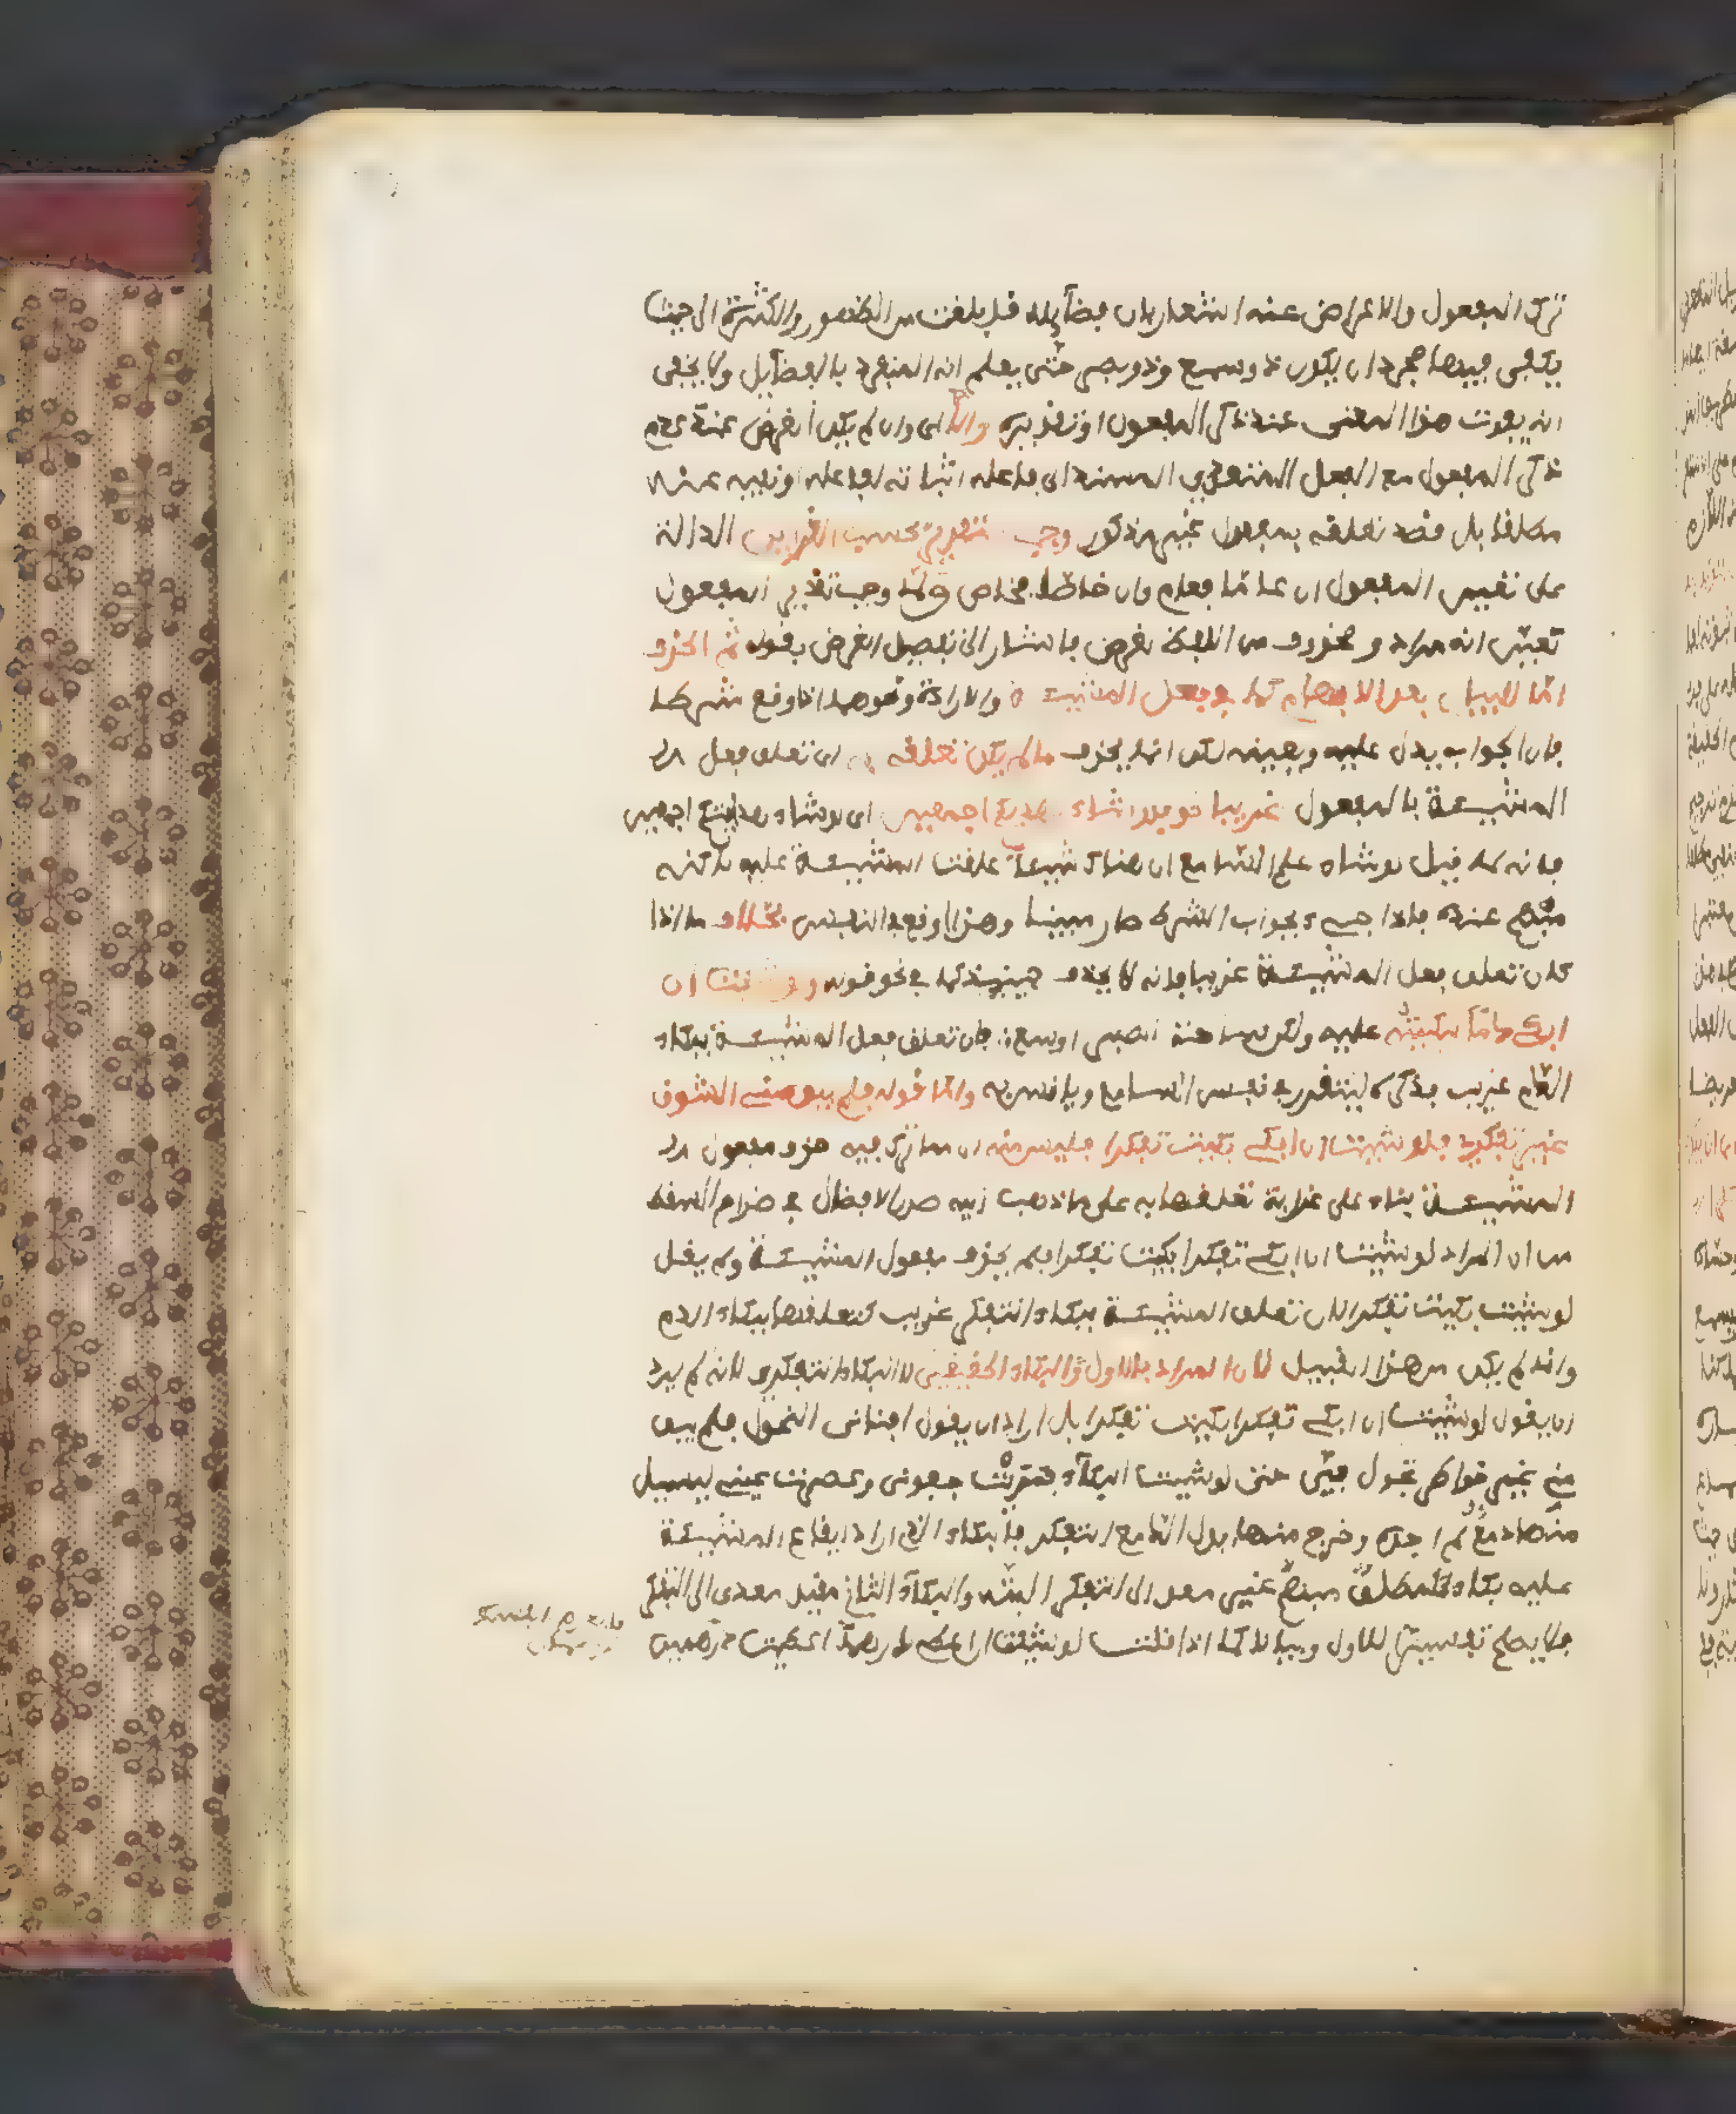 ترك المفعول والاعراض عنه اشعار بان فضآيله قد بلغت من الظهور والكثرة الى حيث
يكفي فيها مجرد ان يكون ذو سمع وذو بصر حتى يعلم انه المنفرد بالفضآيل ولا يخفى
انه يفوت هذا المعنى عند ذكر المفعول او تقديره والا اي وان لم يكن الغرض عند عدم
ذكر المفعول مع الفعل المتعدي المسند الى فاعله اثباته لفاعله او نفيه عنه
مطلقا بل قصد تعلقه بمفعول غير مذكور وجب التقدير بحسب القراين الدالة
على تعيين المفعول ان عاما فعام وان خاصا فخاص ولما وجب تقدير المفعول
تعين انه مراد ومحذوف من اللفظ لغرض فاشار الى تفصيل الغرض بقوله ثم الحذف
اما للبيان بعد الابهام كما في فعل المشيئة والارادة ونحوهما اذا وقع شرطا
فان الجواب يدل عليه ويبينه لكن انما يحذف ما لم يكن تعلقه به اي تعلق فعل
المشيئة بالمفعول غريبا نحو فلو شاء لهديكم اجمعين اي لو شاء هدايتكم اجمعين
فانه لما قيل لو شاء علم السامع ان هناك شيئا علقت المشيئة عليه لاكنه
مبهم عنده فاذا جيء بجواب الشرط صار مبينا وهذا اوقع في النفس بخلاف ما اذا
كان تعلق فعل المشيئة غريبا فانه لا يحذف حينيذ كما في نحو قوله ولو شئت ان
ابكي دما لبكيته عليه ولكن ساحة الصبر اوسع فان تعلق فعل المشيئة ببكاء
الدم غريب فذكره ليتقرر في نفس السامع ويانس به واما قوله فلم يبق مني الشوق
غير تفكري فلو شيت ان ابكي بكيت تفكرا فليس منه اي مما ترك فيه حذف مفعول
المشيئة بناء على غرابة تعلقها به على ما ذهب اليه صدر الافضال في ضرام السقط
من ان المراد لو شيت ان ابكي تفكرا بكيت تفكرا فلم يحذف مفعول المشيئة ولم يقل
لو شيت بكيت تفكرا لان تعلق المشيئة ببكاء التفكر غريب كتعلقها ببكاء الدم
وانما لم يكن من هذا القبيل لان المراد بالاول البكاء الحقيقي لا البكاء التفكري لانه لم يرد
ان يقول لو شيت ان ابكي تفكرا بكيت تفكرا بل اراد ان يقول افناني النحول فلم يبق
مني غير خواطر تجول في حتى لو شيت البكاء فمريت جفوني وعصرت عيني ليسيل
منها دمع لم اجده وخرج منها بدل الدمع التفكر فالبكاء الذي اراد ايقاع المشيئة
عليه بكاء مطلق مبهم غير معدى الى التفكر البتة والبكاء الثاني مقيد معدى الى التفكر
فلا يصلح تفسيرا للاول وبيانا له كما اذا قلت لو شئت ان تعطي درهما اعطيت درهمين